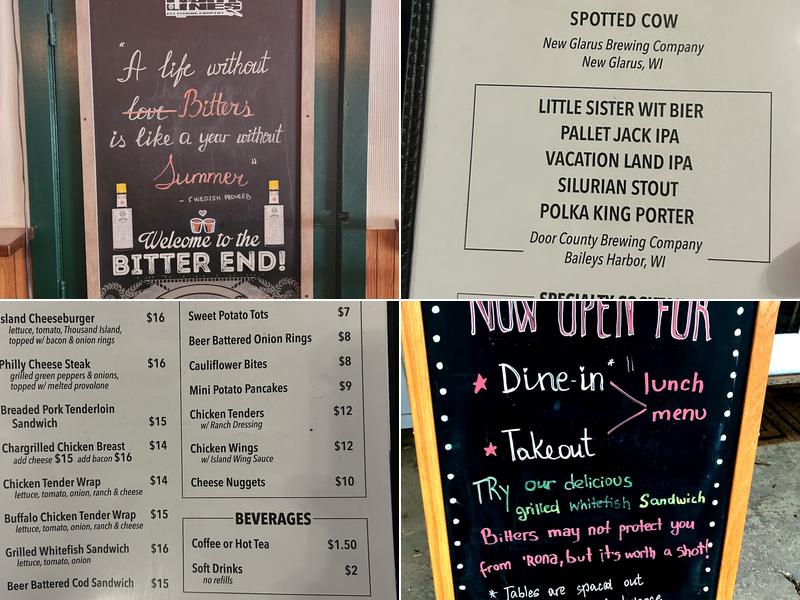 FLY FISHING COMPANY
"A life without
love Bitters
is like a year without
Summer"
- SWEDISH PROVERB
Welcome to the
BITTER END!
SPOTTED COW
New Glarus Brewing Company
New Glarus, WI
LITTLE SISTER WIT BIER
PALLET JACK IPA
VACATION LAND IPA
SILURIAN STOUT
POLKA KING PORTER
Door County Brewing Company
Baileys Harbor, WI
sland Cheeseburger $16
lettuce, tomato, Thousand Island,
topped w/ bacon & onion rings
Philly Cheese Steak $16
grilled green peppers & onions,
topped w/ melted provolone
Breaded Pork Tenderloin
Sandwich $15
Chargrilled Chicken Breast $14
add cheese $15 add bacon $16
Chicken Tender Wrap $14
lettuce, tomato, onion, ranch & cheese
Buffalo Chicken Tender Wrap $15
lettuce, tomato, onion, ranch & cheese
Grilled Whitefish Sandwich $16
lettuce, tomato, onion
Beer Battered Cod Sandwich $15
Sweet Potato Tots $7
Beer Battered Onion Rings $8
Cauliflower Bites $8
Mini Potato Pancakes $9
Chicken Tenders $12
w/ Ranch Dressing
Chicken Wings $12
w/ Island Wing Sauce
Cheese Nuggets $10
BEVERAGES
Coffee or Hot Tea $1.50
Soft Drinks $2
no refills
NOW OPEN FOR
Dine-in*
lunch
menu
Takeout
TRY our delicious
grilled whitefish Sandwich
Bitters may not protect you
from 'RONA, but it's worth a shot!
* Tables are spaced out